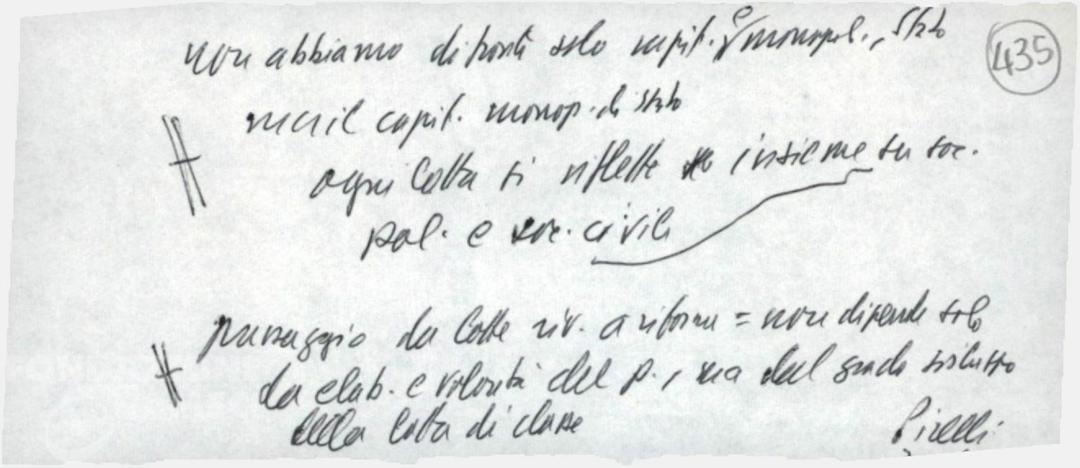 435
non abbiamo di fronte solo capit. e monopol., Stato
ma il capit. monop. di stato
ogni lotta si riflette insieme su soc.
pol. e soc. civile
passaggio da lotte riv. a riforma = non dipende solo
da elab. e volontà del p., ma dal grado sviluppo
della lotta di classe
Pirelli